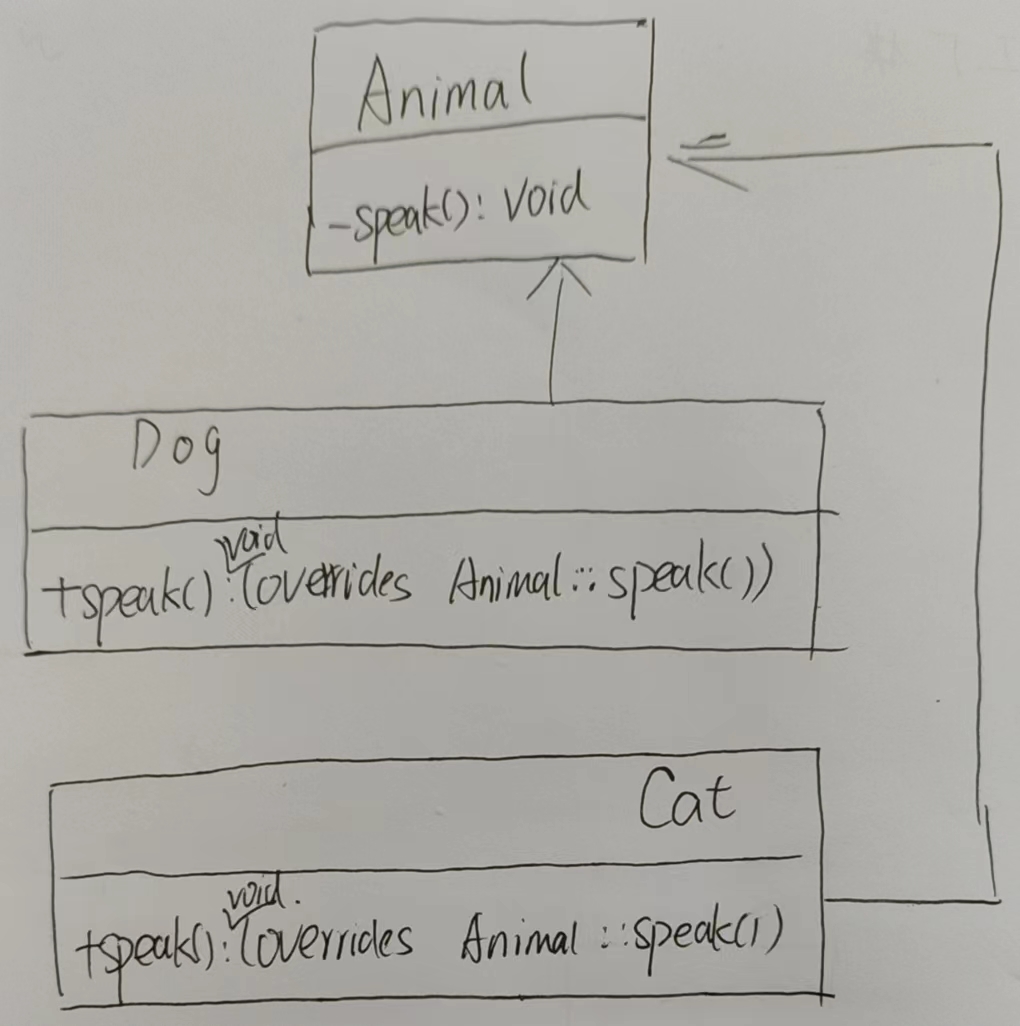 Animal
-speak(): void
Dog
+speak(): void (overrides Animal::speak())
Cat
+speak(): void. (overrides Animal::speak())